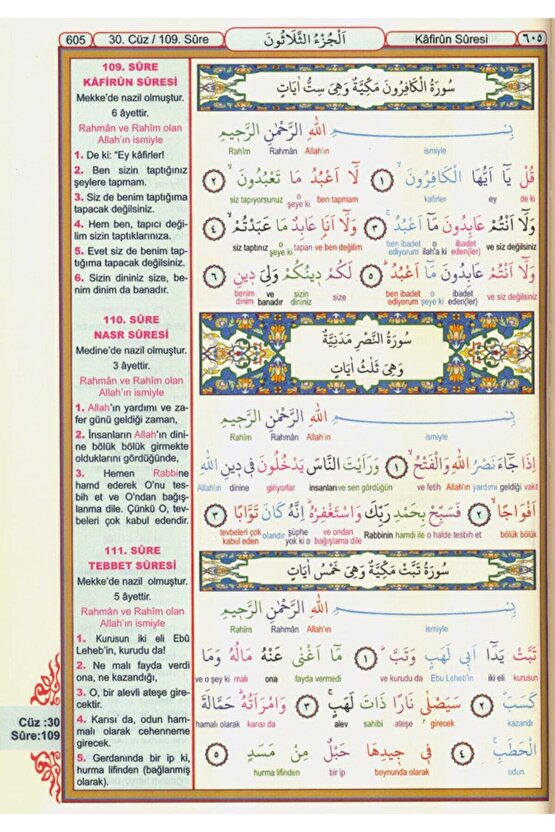 605
30. Cüz / 109. Sûre
اَلْجُزْءُ الثَّلَاثُونَ
Kâfirûn Sûresi
٦٠٥
109. SÛRE
KÂFİRÛN SÛRESİ
Mekke'de nazil olmuştur.
6 âyettir.
Rahmân ve Rahîm olan
Allah'ın ismiyle
1. De ki: "Ey kâfirler!
2. Ben sizin taptığınız
şeylere tapmam.
3. Siz de benim taptığıma
tapacak değilsiniz.
4. Hem ben, tapıcı deği-
lim sizin taptıklarınıza.
5. Evet siz de benim tap-
tığıma tapacak değilsiniz.
6. Sizin dininiz size, be-
nim dinim da banadır.
110. SÛRE
NASR SÛRESİ
Medine'de nazil olmuştur.
3 âyettir.
Rahmân ve Rahîm olan
Allah'ın ismiyle
1. Allah'ın yardımı ve za-
fer günü geldiği zaman,
2. İnsanların Allah'ın dini-
ne bölük bölük girmekte
olduklarını gördüğünde,
3. Hemen Rabbine
hamd ederek O'nu tes-
bih et ve O'ndan bağış-
lanma dile. Çünkü O, tev-
beleri çok kabul edendir.
111. SÛRE
TEBBET SÛRESİ
Mekke'de nazil olmuştur.
5 âyettir.
Rahmân ve Rahîm olan
Allah'ın ismiyle
1. Kurusun iki eli Ebû
Leheb'in, kurudu da!
2. Ne malı fayda verdi
ona, ne kazandığı,
3. O, bir alevli ateşe gire-
cektir.
4. Karısı da, odun ham-
malı olarak cehenneme
girecek.
5. Gerdanında bir ip ki,
hurma lifinden (bağlanmış
olarak).
Cüz :30
Sûre:109
سُورَةُ الْكَافِرُونَ مَكِّيَّةٌ وَهِيَ سِتُّ اٰيَاتٍ
بِسْمِ اللهِ الرَّحْمٰنِ الرَّحِيمِ
Rahîm Rahmân Allah'ın ismiyle
قُلْ يَا اَيُّهَا الْكَافِرُونَ ﴿١﴾ لَا اَعْبُدُ مَا تَعْبُدُونَ ﴿٢﴾
siz tapıyorsunuz o şeye ki ben tapmam kafirler ey de ki
وَلَا اَنْتُمْ عَابِدُونَ مَا اَعْبُدُ ﴿٣﴾ وَلَا اَنَا عَابِدٌ مَا عَبَدْتُمْ ﴿٤﴾
siz taptınız o şeye ki tapan ve ben değilim ben ibadet ediyorum o ilah'a ki ibadet eden(ler) ve siz değilsiniz
وَلَا اَنْتُمْ عَابِدُونَ مَا اَعْبُدُ ﴿٥﴾ لَكُمْ دِينُكُمْ وَلِيَ دِينِ ﴿٦﴾
benim dinim ve banadır sizin dininiz size ben ibadet ediyorum o şeye ki ibadet eden(ler) ve siz değilsiniz
سُورَةُ النَّصْرِ مَدَنِيَّةٌ
وَهِيَ ثَلٰثُ اٰيَاتٍ
بِسْمِ اللهِ الرَّحْمٰنِ الرَّحِيمِ
Rahîm Rahmân Allah'ın ismiyle
اِذَا جَاءَ نَصْرُ اللهِ وَالْفَتْحُ ﴿١﴾ وَرَاَيْتَ النَّاسَ يَدْخُلُونَ فِي دِينِ اللهِ
Allah'ın dinine giriyorlar insanları ve sen gördüğün ve fetih Allah'ın yardımı geldiği vakit
اَفْوَاجًا ﴿٢﴾ فَسَبِّحْ بِحَمْدِ رَبِّكَ وَاسْتَغْفِرْهُ اِنَّهُ كَانَ تَوَّابًا ﴿٣﴾
tevbeleri çok kabul eden olandır şüphe yok ki o ve ondan bağışlama dile Rabbinin hamdi ile o halde tesbih et bölük bölük
سُورَةُ تَبَّتْ مَكِّيَّةٌ وَهِيَ خَمْسُ اٰيَاتٍ
بِسْمِ اللهِ الرَّحْمٰنِ الرَّحِيمِ
Rahîm Rahmân Allah'ın ismiyle
تَبَّتْ يَدَا اَبِي لَهَبٍ وَتَبَّ ﴿١﴾ مَا اَغْنٰى عَنْهُ مَالُهُ وَمَا
ve o şey ki malı ona fayda vermedi ve kurudu da Ebu Leheb'in iki eli kurusun
كَسَبَ ﴿٢﴾ سَيَصْلٰى نَارًا ذَاتَ لَهَبٍ ﴿٣﴾ وَامْرَاَتُهُ حَمَّالَةَ
hamalı olarak karısı da alev sahibi ateşe girecek kazandı
الْحَطَبِ ﴿٤﴾ فِي جِيدِهَا حَبْلٌ مِنْ مَسَدٍ ﴿٥﴾
hurma lifinden bir ip boynunda olarak odun